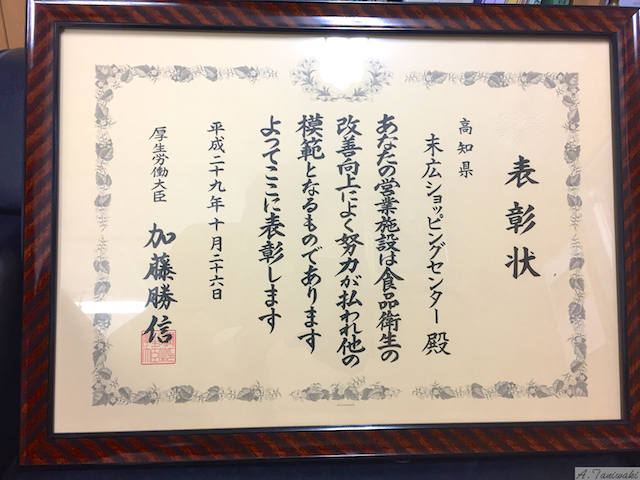 表彰状
高知県
末広ショッピングセンター 殿
あなたの営業施設は食品衛生の
改善向上によく努力が払われ他の
模範となるものであります
よってここに表彰します
平成二十九年十月二十六日
厚生労働大臣
加藤勝信
A. Taniwaki